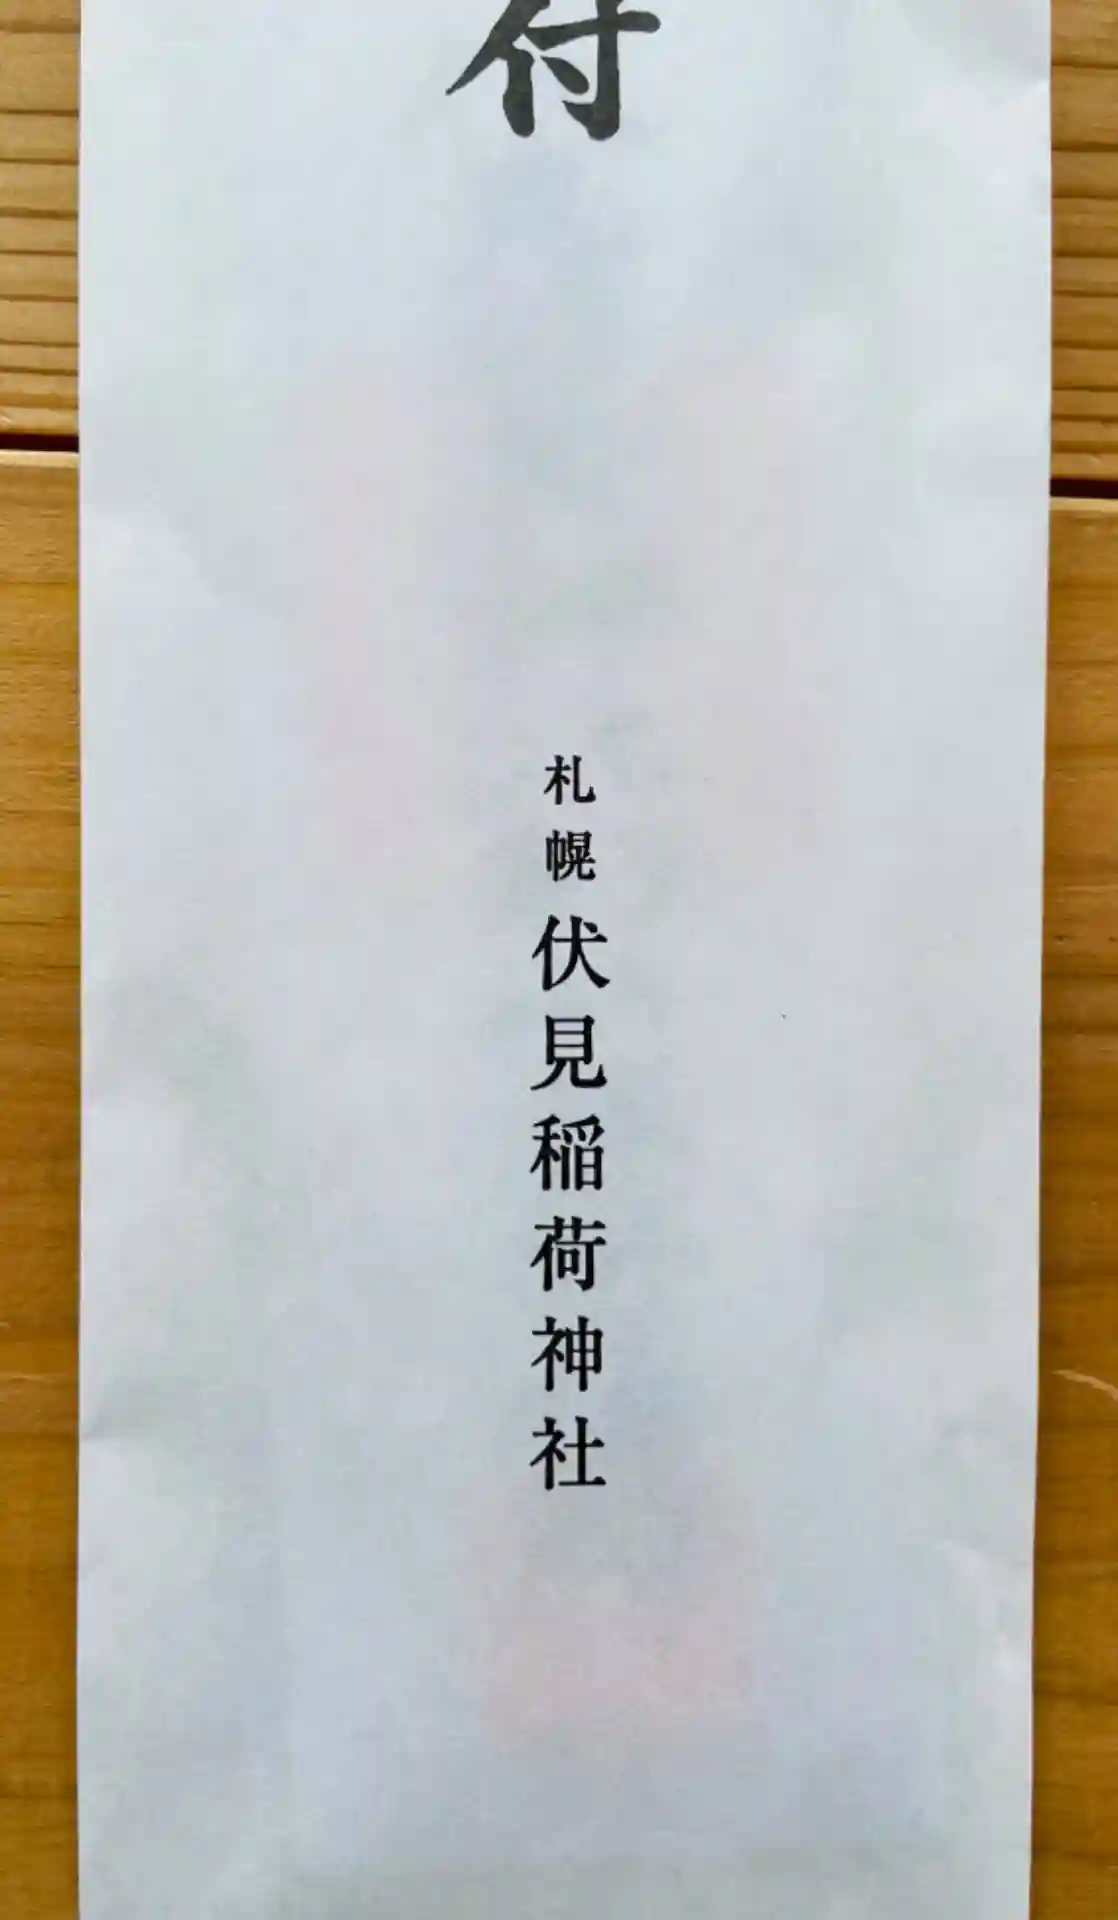 付
札幌 伏見稲荷神社